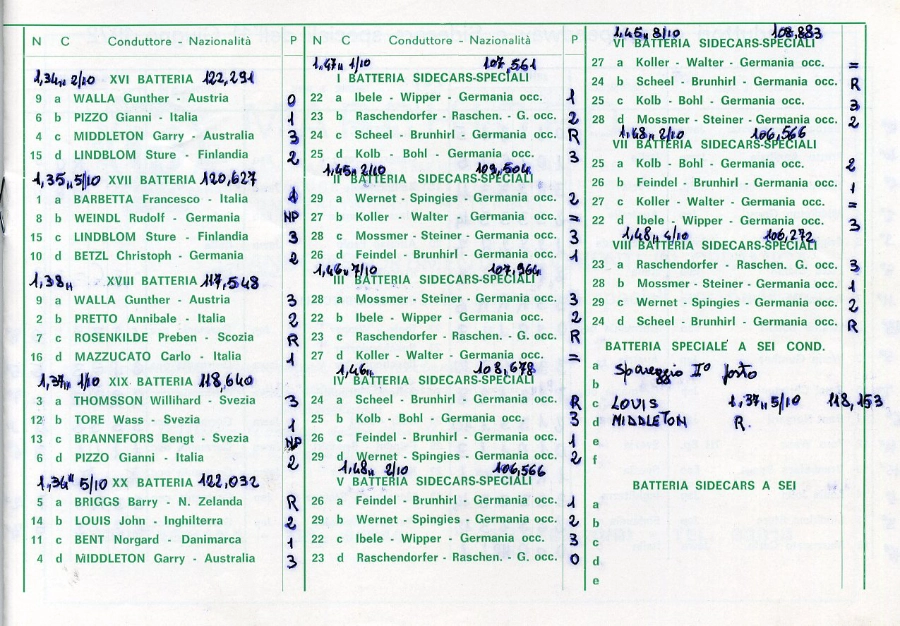 N C Conduttore - Nazionalità P
1,34,, 2/10 XVI BATTERIA 122,291
9 a WALLA Gunther - Austria 0
6 b PIZZO Gianni - Italia 1
4 c MIDDLETON Garry - Australia 3
15 d LINDBLOM Sture - Finlandia 2
1,35,, 5/10 XVII BATTERIA 120,627
1 a BARBETTA Francesco - Italia 1
8 b WEINDL Rudolf - Germania NP
15 c LINDBLOM Sture - Finlandia 3
10 d BETZL Christoph - Germania 2
1,38,, XVIII BATTERIA 117,548
9 a WALLA Gunther - Austria 3
2 b PRETTO Annibale - Italia 2
7 c ROSENKILDE Preben - Scozia R
16 d MAZZUCATO Carlo - Italia 1
1,37,, 1/10 XIX BATTERIA 118,640
3 a THOMSSON Willihard - Svezia 3
12 b TORE Wass - Svezia 1
13 c BRANNEFORS Bengt - Svezia NP
6 d PIZZO Gianni - Italia 2
1,34" 5/10 XX BATTERIA 122,032
5 a BRIGGS Barry - N. Zelanda R
14 b LOUIS John - Inghilterra 2
11 c BENT Norgard - Danimarca 1
4 d MIDDLETON Garry - Australia 3
N C Conduttore - Nazionalità P
1,47,, 1/10 107,561
I BATTERIA SIDECARS-SPECIALI
22 a Ibele - Wipper - Germania occ. 1
23 b Raschendorfer - Raschen. - G. occ. 2
24 c Scheel - Brunhirl - Germania occ. R
25 d Kolb - Bohl - Germania occ. 3
1,45,, 2/10 109,504
II BATTERIA SIDECARS-SPECIALI
29 a Wernet - Spingies - Germania occ. 2
27 b Koller - Walter - Germania occ. =
28 c Mossmer - Steiner - Germania occ. 3
26 d Feindel - Brunhirl - Germania occ. 1
1,46,, 7/10 107,964
III BATTERIA SIDECARS-SPECIALI
28 a Mossmer - Steiner - Germania occ. 3
22 b Ibele - Wipper - Germania occ. 2
23 c Raschendorfer - Germania occ. R
27 d Koller - Walter - Germania occ. =
1,46,, 108,678
IV BATTERIA SIDECARS-SPECIALI
24 a Scheel - Brunhirl - Germania occ. R
25 b Kolb - Bohl - Germania occ. 3
26 c Feindel - Brunhirl - Germania occ. 1
29 d Wernet - Spingies - Germania occ. 2
1,48,, 2/10 106,566
V BATTERIA SIDECARS-SPECIALI
26 a Feindel - Brunhirl - Germania occ. 1
29 b Wernet - Spingies - Germania occ. 2
22 c Ibele - Wipper - Germania occ. 3
23 d Raschendorfer - Raschen. - G. occ. 0
1,45,, 8/10 108,883
VI BATTERIA SIDECARS-SPECIALI
27 a Koller - Walter - Germania occ. =
24 b Scheel - Brunhirl - Germania occ. R
25 c Kolb - Bohl - Germania occ. 3
28 d Mossmer - Steiner - Germania occ. 2
1,48,, 2/10 106,566
VII BATTERIA SIDECARS-SPECIALI
25 a Kolb - Bohl - Germania occ. 2
26 b Feindel - Brunhirl - Germania occ. 1
27 c Koller - Walter - Germania occ. =
22 d Ibele - Wipper - Germania occ. 3
1,48,, 4/10 106,272
VIII BATTERIA SIDECARS-SPECIALI
23 a Raschendorfer - Raschen. G. occ. 3
28 b Mossmer - Steiner - Germania occ. 1
29 c Wernet - Spingies - Germania occ. 2
24 d Scheel - Brunhirl - Germania occ. R
BATTERIA SPECIALE A SEI COND.
a Spareggio II° posto
b
c LOUIS 1,37,, 5/10 118,153
d MIDDLETON R.
e
f
BATTERIA SIDECARS A SEI
a
b
c
d
e